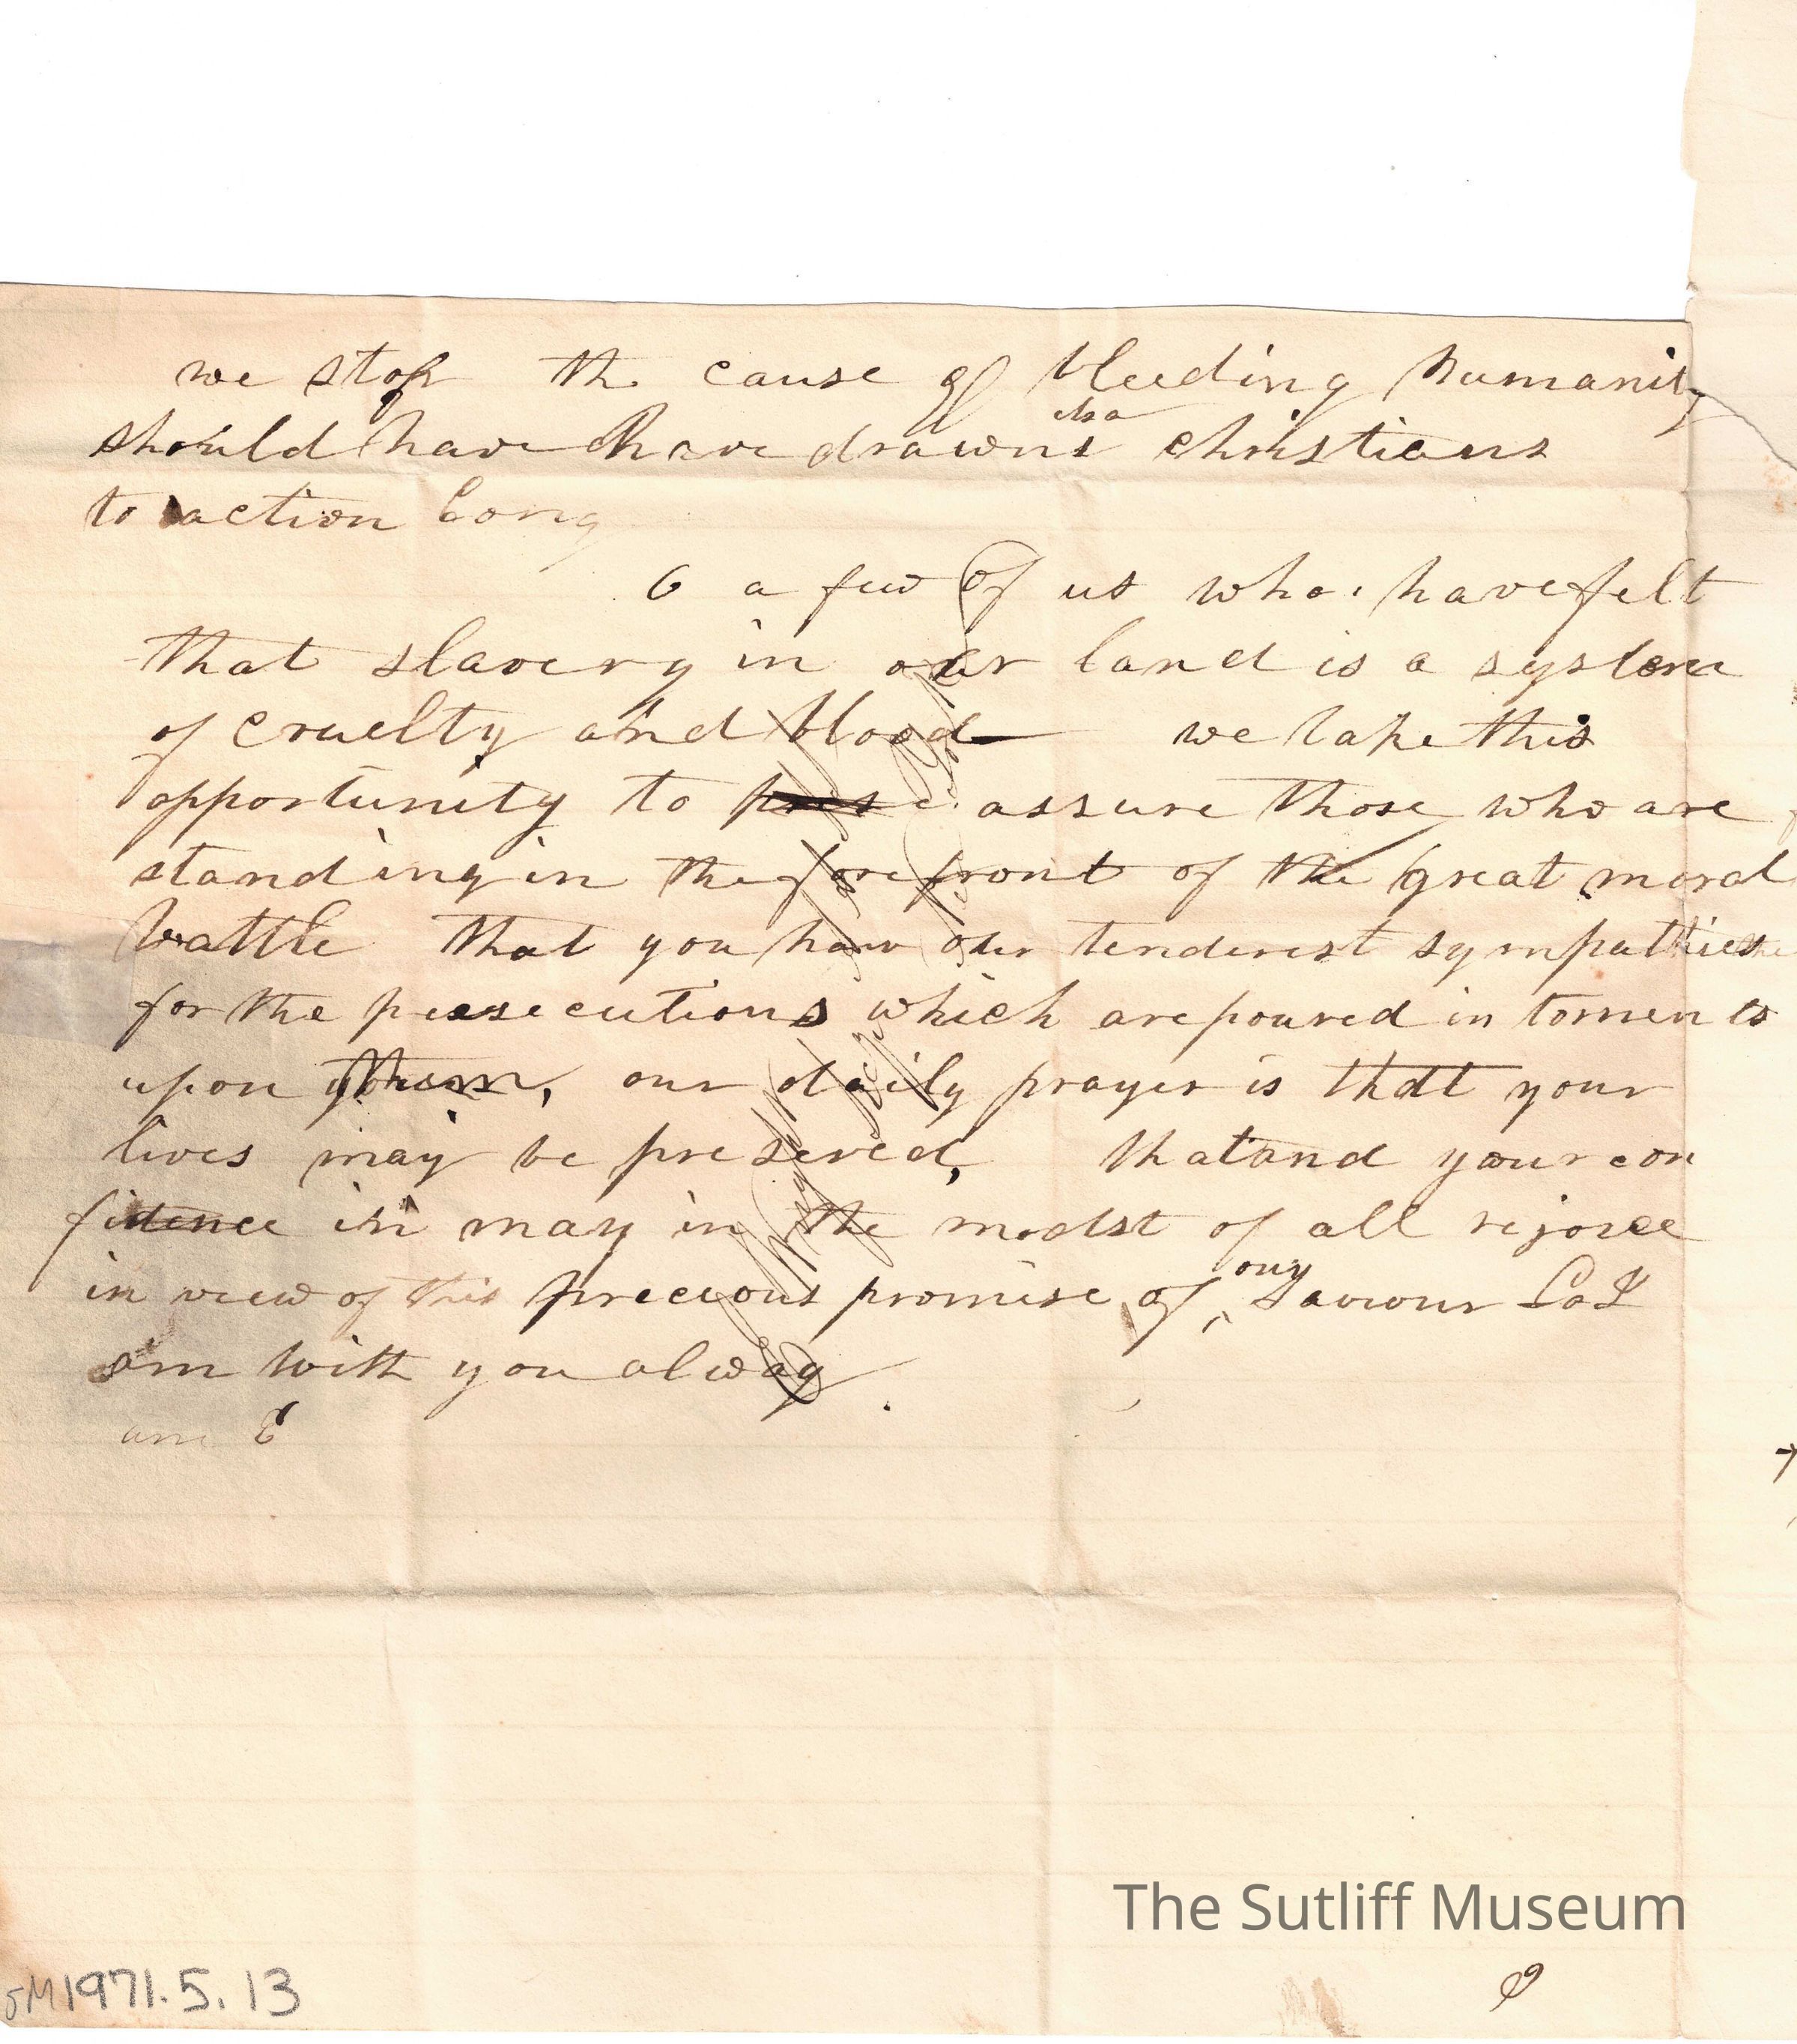 we stop th cause of bleeding humanity
should have have drawn christians
to action Long
6 a few of us who have felt
that slavery in our land is a system
of cruelty and blood we take this
opportunity to assure those who are
standing in the forefront of the great moral
battle that you have our tenderest sympathies
for the persecutions which are poured in torrents
upon our daily prayer is that your
lives may be preserved, that and your con
fidence in may in the midst of all rejoice
in view of this precious promise of our Saviour Lo I
am with you alway
am
The Sutliff Museum
SM1971.5.13